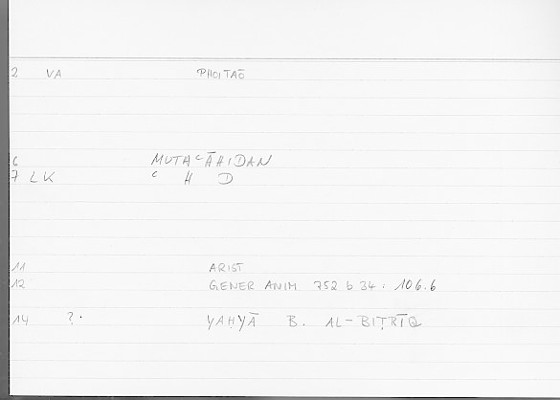 2 VA PHOITAŌ
6 MUTAᶜĀHIDAN
7 LK ᶜ H D
11 ARIST
12 GENER ANIM 752 b 34 : 106.6
14 ?. YAḤYĀ B. AL-BIṬRĪQ